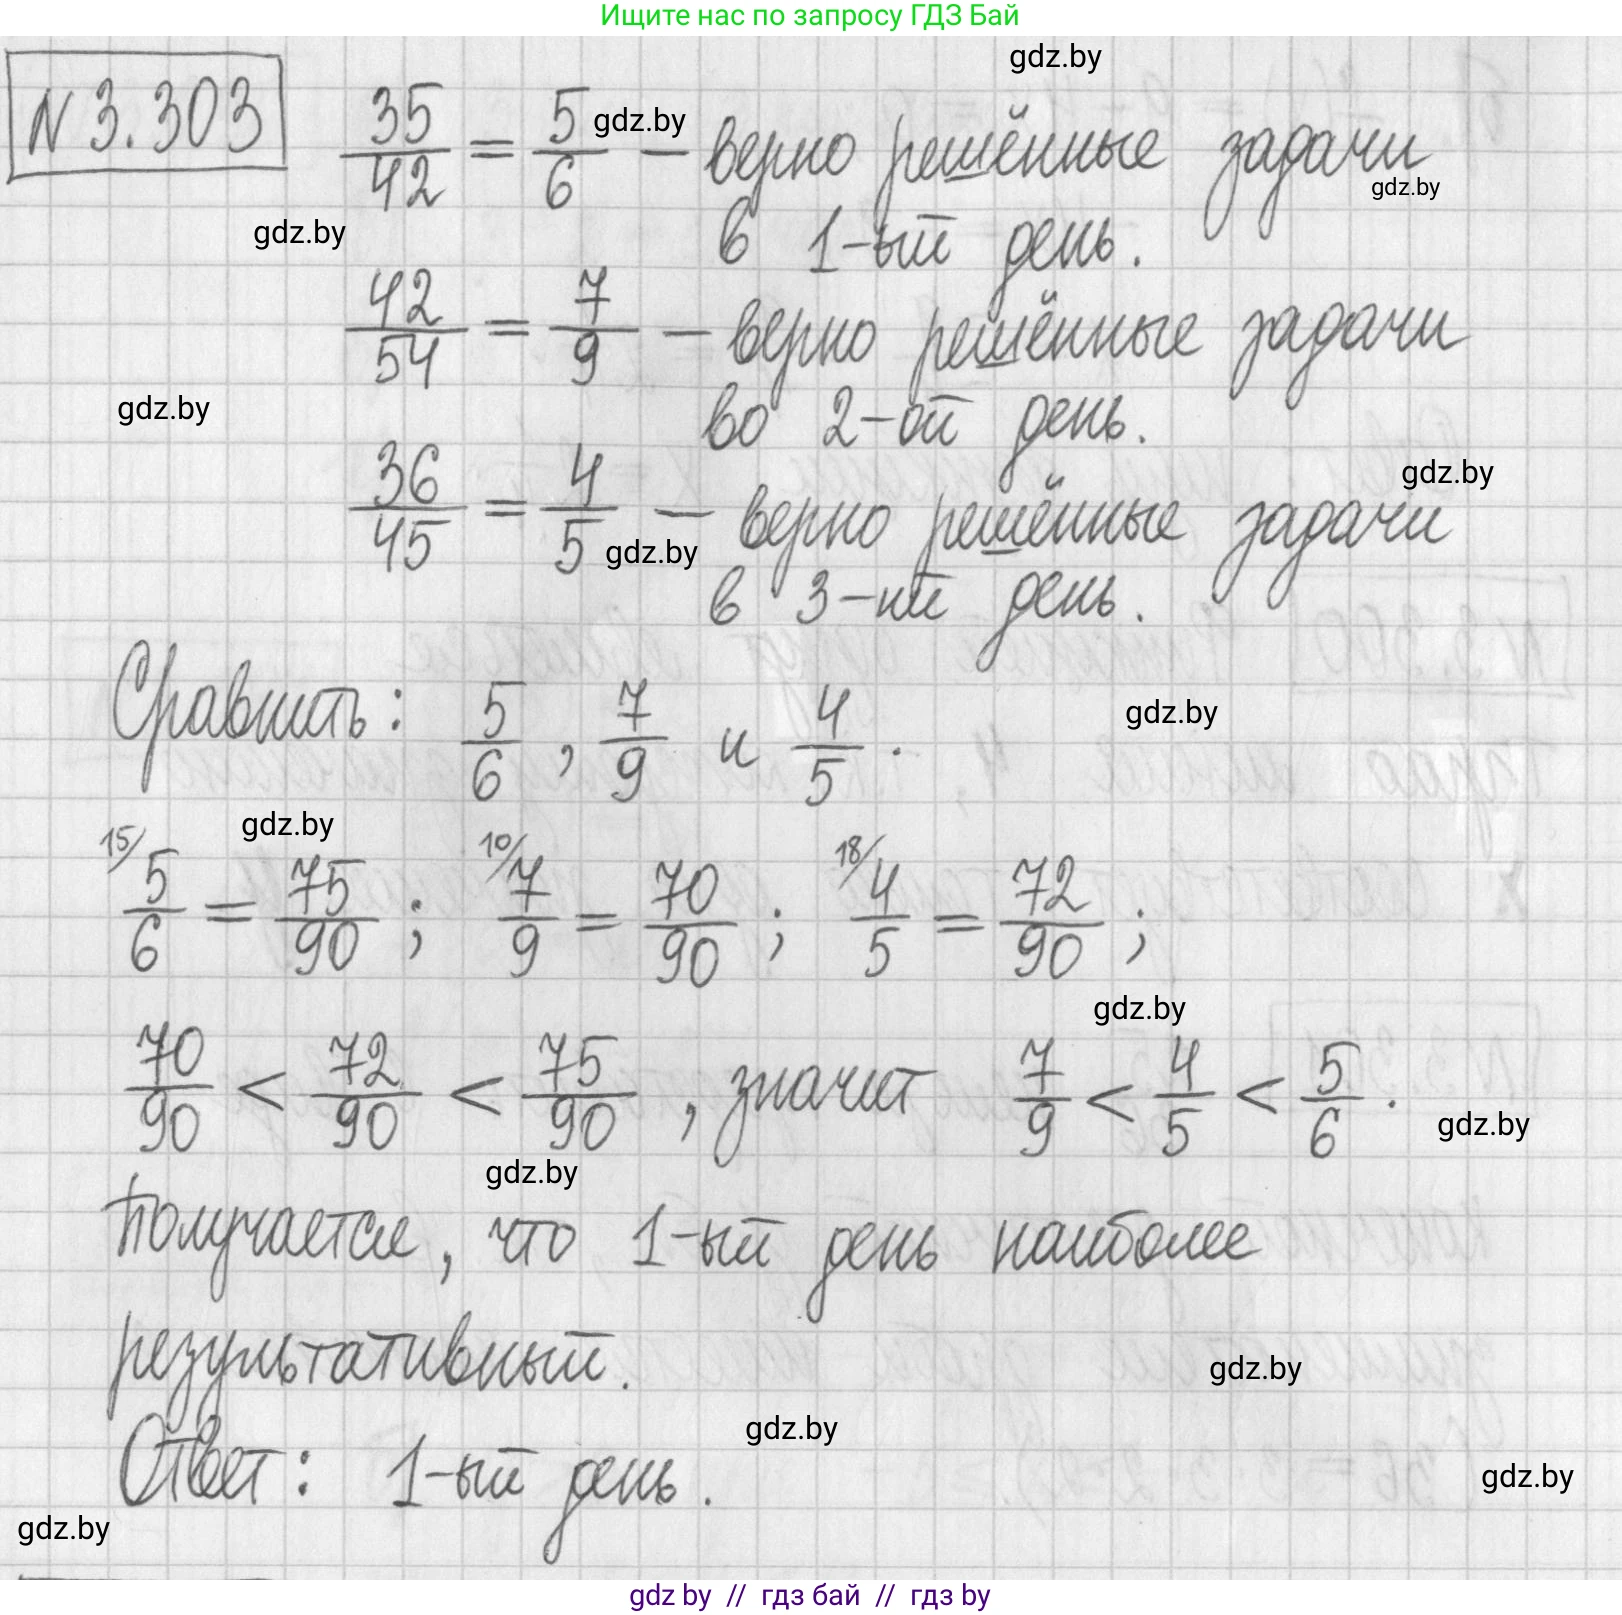 Ищите нас по запросу ГДЗ Бай
gdz.by
N 3.303 35/42 = 5/6 gdz.by — верно решённые задачи
gdz.by
gdz.by в 1-ый день.
42/54 = 7/9 — верно решённые задачи
gdz.by во 2-ой день.
gdz.by
36/45 = 4/5 gdz.by — верно решённые задачи
в 3-ий день.
Сравнить: 5/6, 7/9 и 4/5. gdz.by
gdz.by
15/ 5/6 = 75/90; 10/ 7/9 = 70/90; 18/ 4/5 = 72/90;
gdz.by
70/90 < 72/90 < 75/90, значит 7/9 < 4/5 < 5/6. gdz.by
gdz.by
Получается, что 1-ый день наиболее
результативный. gdz.by
gdz.by
Ответ: 1-ый день. gdz.by
gdz.by
gdz by // гдз бай // гдз by